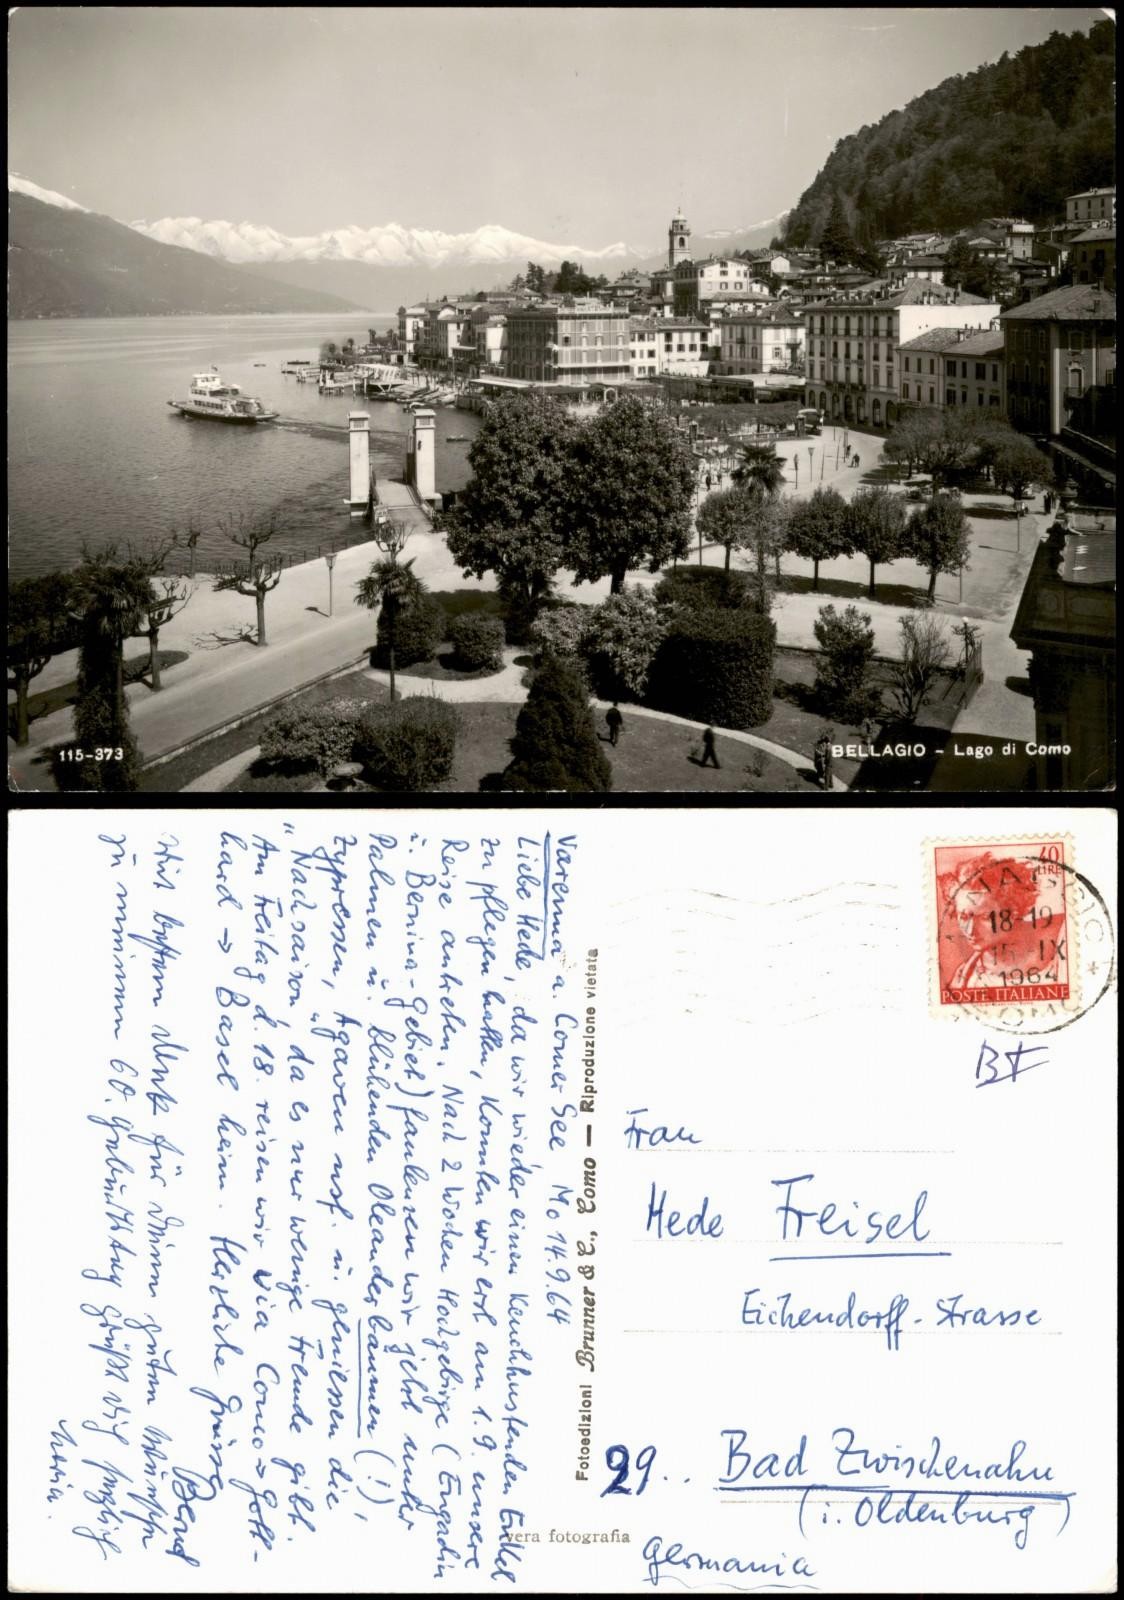 115-373
BELLAGIO - Lago di Como
Varenna a. Comer See Mo 14.9.64
Liebe Hede, da wir wieder einen keuchhustenden Enkel
zu pflegen hatten, konnten wir erst am 1.9. unsere
Reise antreten. Nach 2 Wochen Hochgebirge (Engadin
u. Bernina-Gebiet) faulenzen wir jetzt unter
Palmen u. blühenden Oleanderbäumen (!),
Zypressen, Agaven usf. u. geniessen die
"Nachsaison", da es nur wenige Fremde gibt.
Am Freitag d. 18. reisen wir via Como → Gott-
hard → Basel heim. Herzliche Grüsse
Bernd
Mit bestem Dank für Deine guten Wünsche
zu meinem 60. Geburtstag grüßt Dich herzlich
Maria.
Fotoedizioni Brunner & C., Como — Riproduzione vietata
vera fotografia
40
LIRE
POSTE ITALIANE
18-19
15 IX
1964
COMO
BF
Frau
Hede Freisel
Eichendorff-Strasse
29.. Bad Zwischenahn
(i. Oldenburg)
Germania